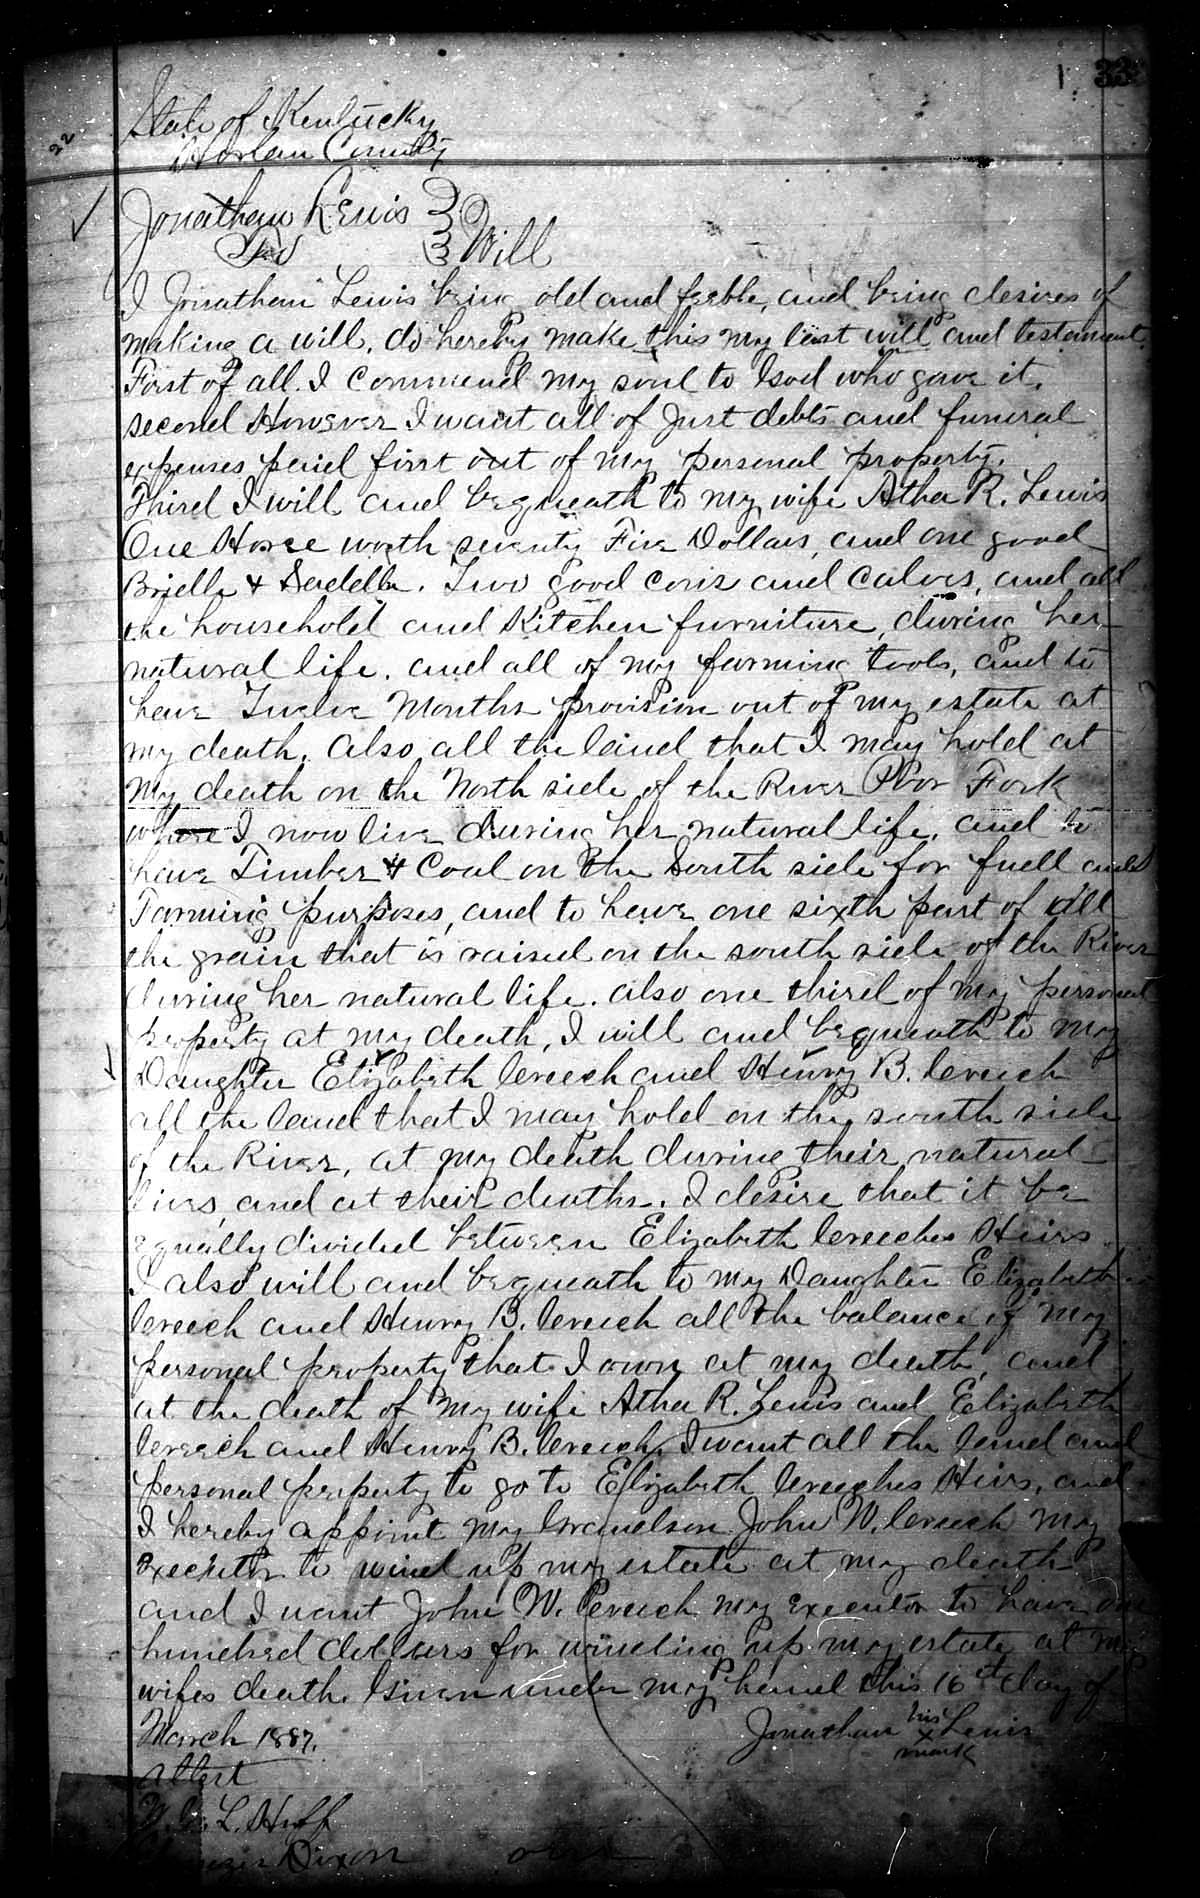 33
22
State of Kentucky
Harlan County
Jonathan Lewis
Will
I Jonathan Lewis being old and feeble, and being desires of
making a will, do hereby make this my last will and testament.
First of all. I commend my soul to God who gave it.
second However I want all of Just debts and funeral
expenses paid first out of my personal property.
Third I will and bequeath to my wife Atha R. Lewis
One Horse worth seventy Five Dollars, and one good
Bridle & Saddle. Two good cows and calves, and all
the household and Kitchen furniture, during her
natural life. and all of my farming tools, and to
have Twelve Months provision out of my estate at
my death. Also all the land that I may hold at
my death on the North side of the River Poor Fork
where I now live during her natural life. and to
have Timber & Coal on the South side for fuell and
Farming purposes, and to have one sixth part of all
the grain that is raised on the south side of the River
during her natural life. also one third of my personal
property at my death. I will and bequeath to my
Daughter Elizabeth Creech and Henry B. Creech
all the land that I may hold on the south side
of the River, at my death during their natural
lives, and at their deaths. I desire that it be
equally divided between Elizabeth Creeches Heirs.
I also will and bequeath to my Daughter Elizabeth
Creech and Henry B. Creech all the balance of my
personal property that I own at my death, and
at the death of my wife Atha R. Lewis and Elizabeth
Creech and Henry B. Creech, I want all the land and
personal property to go to Elizabeth Creeches Heirs, and
I hereby appoint my Grandson John W. Creech my
executor to wind up my estate at my death
and I want John W. Creech my executor to have one
hundred dollars for winding up my estate at my
wifes death. Given under my hand this 16th day of
March 1887.
Jonathan his Lewis
x
mark
Attest
L. Huff
Dixon